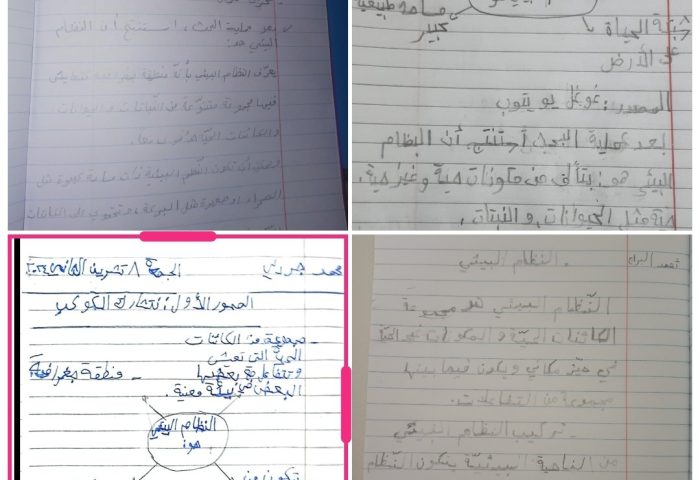 بعد عملية البحث، استنتج أن النظام
البيئي هو:
يعرّف النظام البيئي بأنّه منطقة جغرافية تعيش
فيها مجموعة متنوّعة من النباتات والحيوانات
والكائنات الحيّة
مساحة طبيعية
كبير
شبكة الحياة
على الأرض
المصدر: غوغل يوتيوب
بعد عملية البحث أستنتج أن النظام
البيئي هو: يتألف من مكونات حية وغير حية.
حية مثل الحيوانات والنبتات.
محمد
الجمعة ٨ تشرين الثاني
المحور الأول: نتشارك الكوكب
- مجموعة من الكائنات
الحيّة التي تعيش
وتتفاعل مع بعضها
البعض في بيئة معينة.
- منطقة جغرافية
النظام البيئي
هو:
تتكون من
- النظام البيئي
النّظام البيئي هو مجموعة
الكائنات الحيّة والمكونات غير الحيّة
في حيّز مكاني ويكون فيما بينها
مجموعة من التفاعلات.
- تركيب النظام البيئي
من الناحية البيئيّة يتكون النّظام